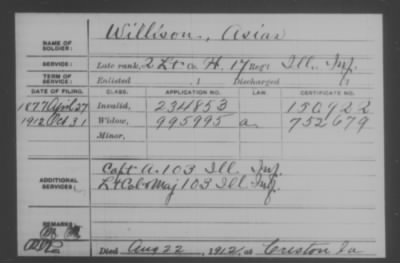 Willison, Asias
NAME OF SOLDIER:
SERVICE: Late rank, 2 Lt Co. H, 17 Reg't Ill. Inf.
TERM OF SERVICE: Enlisted , 1 Discharged , 1
DATE OF FILING. CLASS. APPLICATION NO. LAW. CERTIFICATE NO.
1877 April 27 Invalid, 234853 150922
1912 Oct 31 Widow, 995995 a 752679
Minor,
Capt A. 103 Ill. Inf.
ADDITIONAL SERVICES: Lt Col & Maj 103 Ill Inf.
REMARKS:
Died Aug 22, 1912, at Creston Ia